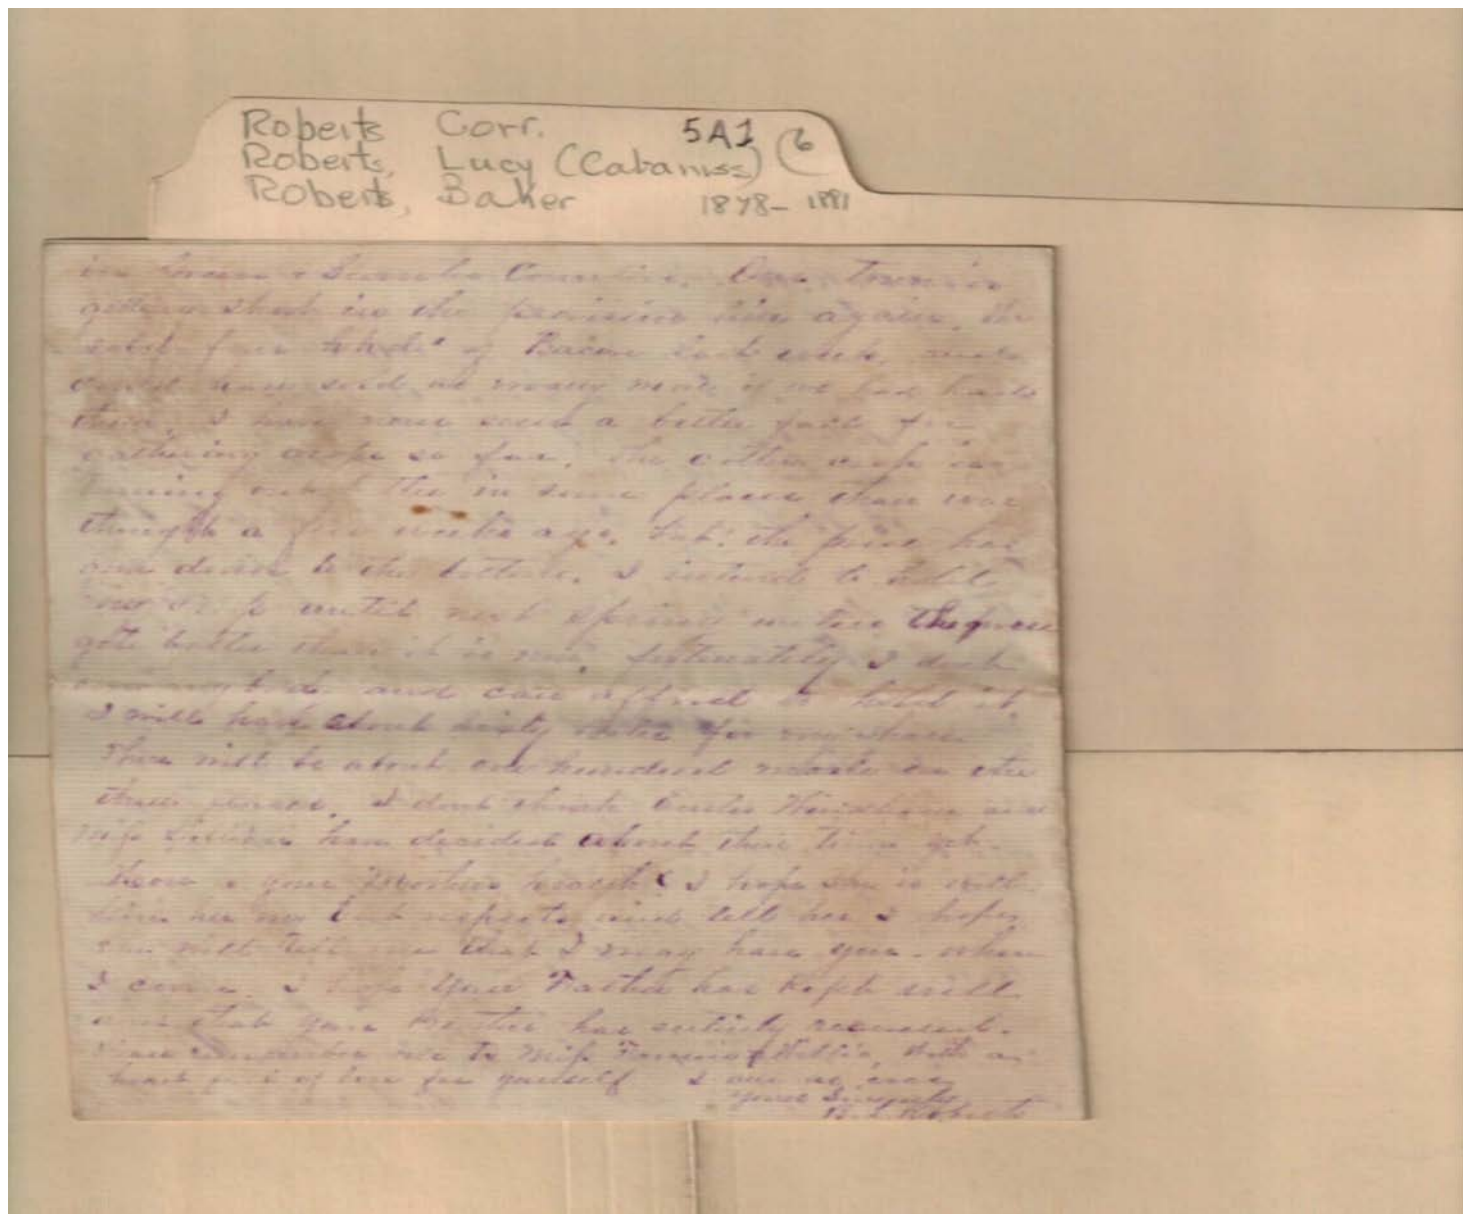 Roberts Corr. 5A1 6
Roberts, Lucy (Cabaniss)
Roberts, Baker 1878-1881
in & Sumter Counties. Our town is
getting short in the provision line again. We
sold four hhds of Bacon last week, and
could have sold as many more if we had had
them. I have never seen a better fall for
gathering crops so far. The cotton crop is
turning out in some places than was
thought a few weeks ago, but the price has
gone down to the bottom. I intend to hold
my crop until next spring unless the price
gets better than it is now, fortunately I dont
and can afford to hold it.
I will have about sixty bales for my share
There will be about one hundred made on the
three places. I dont think and
Miss have decided about their time yet.
How is your Mothers health? I hope she is well.
Give her my best respects and tell her I hope
she will tell me that I may have you when
I come. I hope your Father has kept well
and that your has entirely recovered.
Please remember me to Miss Fannie & Willie, With a
heart full of love for yourself I am as ever
Yours Sincerely
Roberts